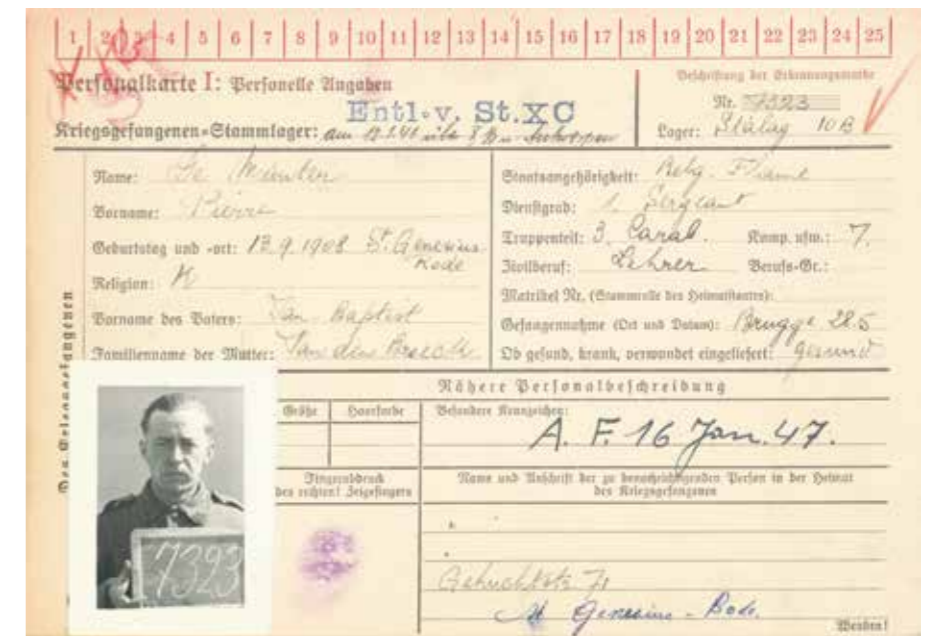 1 2 3 4 5 6 7 8 9 10 11 12 13 14 15 16 17 18 19 20 21 22 23 24 25
Personalkarte I: Personelle Angaben
Entl. v. St. XC
Kriegsgefangenen-Stammlager: am
Beschriftung der Erkennungsmarke
Nr. 7323
Lager: Stalag 10B
Name: De
Vorname: Pierre
Geburtstag und -ort: 13.9.1908 St. Genesius
Rode
Religion: K
Vorname des Vaters: Jan Baptist
Familienname der Mutter: Van den Broeck
Staatsangehörigkeit: Belg. Flame
Dienstgrad: 1. Sergeant
Truppenteil: 3. Carab. Komp. usw.: 7.
Zivilberuf: Lehrer Berufs-Gr.:
Matrikel Nr. (Stammrolle des Heimatstaates):
Gefangennahme (Ort und Datum): Brugge 28.5
Ob gesund, krank, verwundet eingeliefert: gesund
Des Kriegsgefangenen
Nähere Personalbeschreibung
Größe Haarfarbe
Besondere Kennzeichen:
A. F. 16 Jan. 47.
Fingerabdruck
des rechten! Zeigefingers
Name und Anschrift der zu benachrichtigenden Person in der Heimat
des Kriegsgefangenen
7393
St Genesius-Rode.
Wenden!